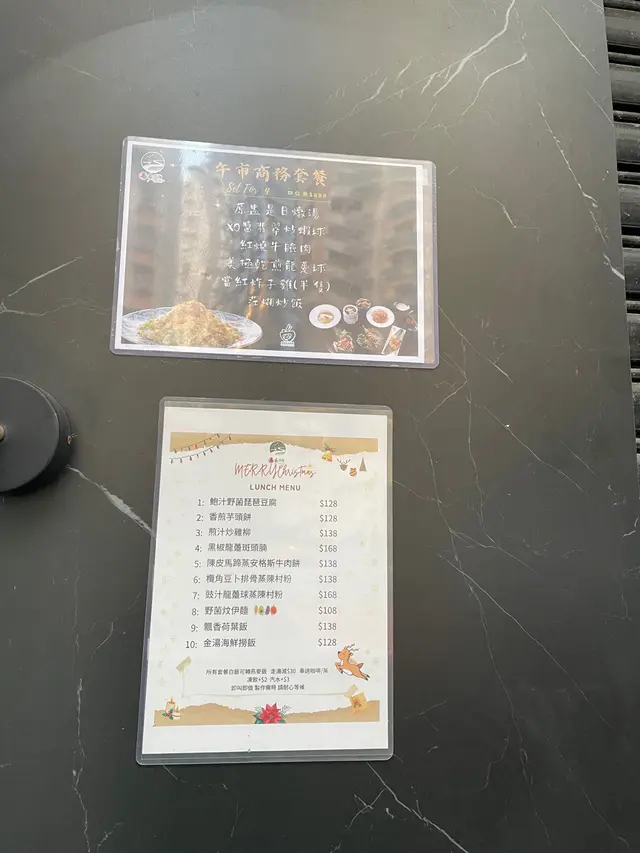 午市商務套餐
Set For 4
原盅是日燉湯
XO醬翡翠炒蝦球
紅燒牛腩肉
美極乾煎龍躉球
當紅炸子雞(半隻)
炒飯
MERRY Christmas
LUNCH MENU
1: 鮑汁野菌琵琶豆腐 $128
2: 香煎芋頭餅 $128
3: 煎汁炒雞柳 $138
4: 黑椒龍躉斑頭腩 $168
5: 陳皮馬蹄蒸安格斯牛肉餅 $138
6: 欖角豆卜排骨蒸陳村粉 $138
7: 豉汁龍躉球蒸陳村粉 $168
8: 野菌炆伊麵 $108
9: 飄香荷葉飯 $138
10: 金湯海鮮撈飯 $128
所有套餐白飯可轉燕麥飯 走湯減$10 奉送咖啡/茶
凍飲+$2 汽水+$3
即叫即做 製作需時 請耐心等候